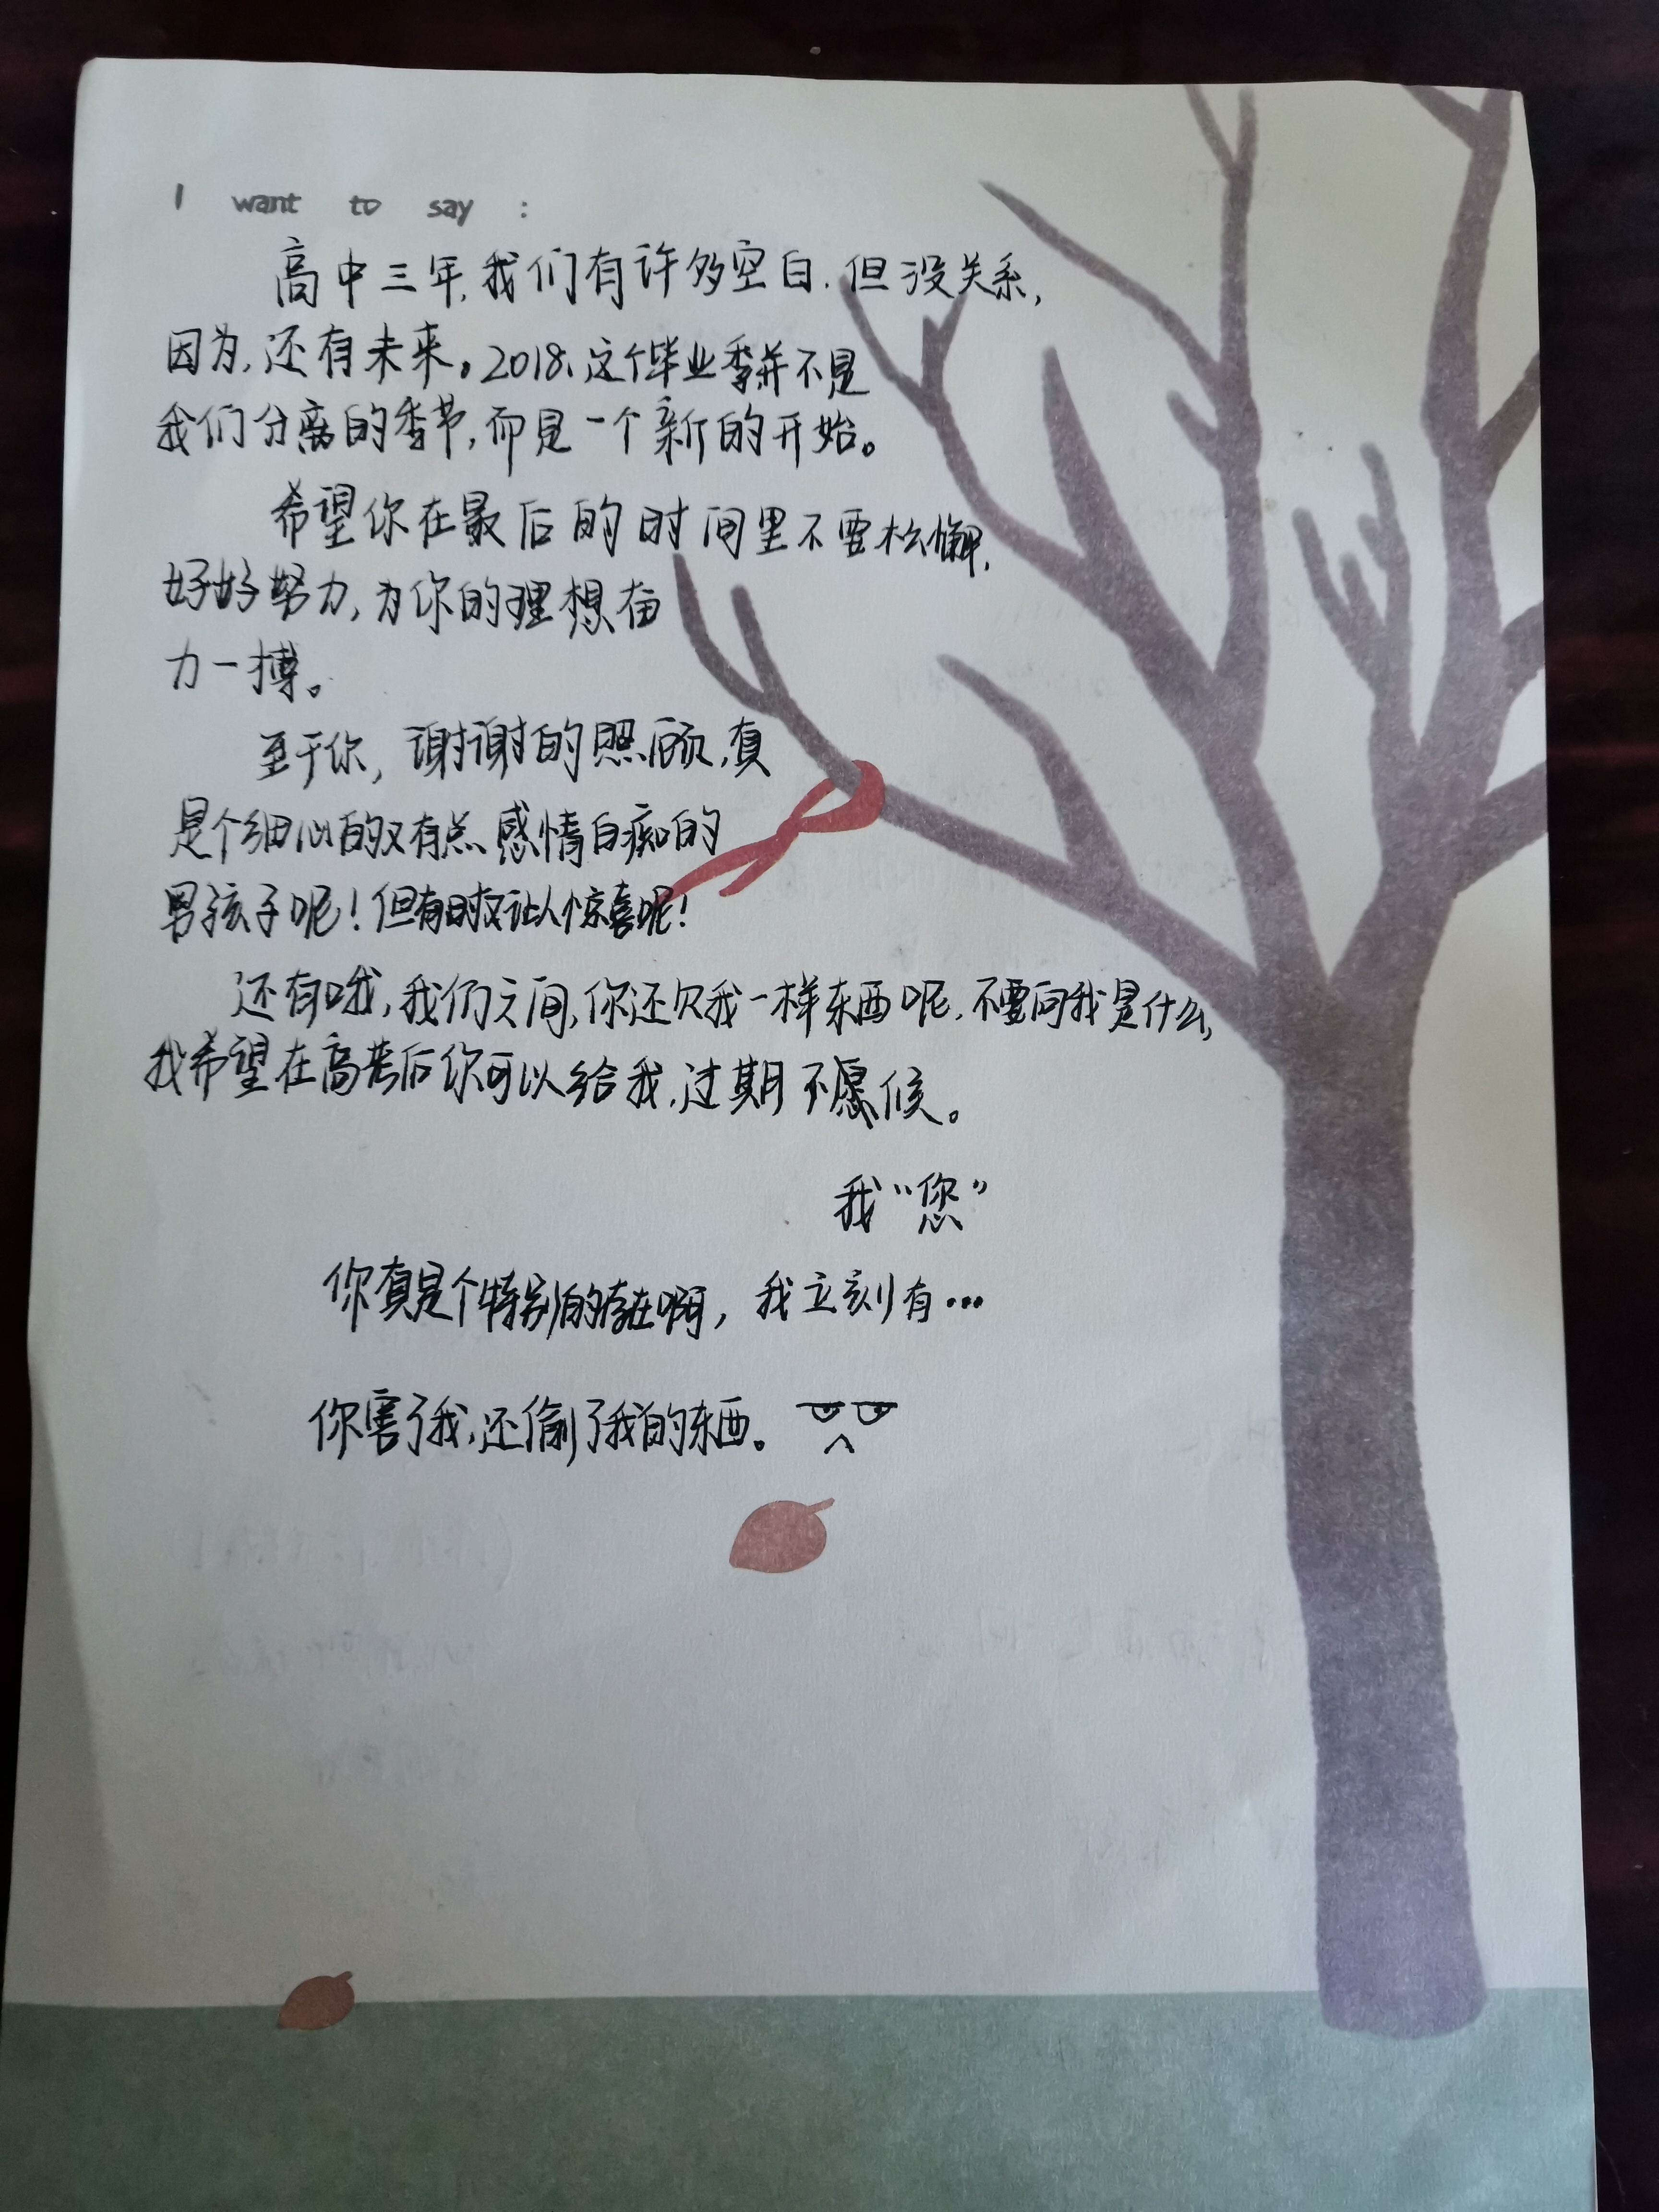 I want to say :
高中三年,我们有许多空白.但没关系,
因为,还有未来。2018、这个毕业季并不是
我们分离的季节,而是一个新的开始。
希望你在最后的时间里不要松懈,
好好努力,为你的理想奋
力一搏。
至于你,谢谢的照顾,真
是个细心的又有点感情白痴的
男孩子呢!但有时又让人惊喜呢!
还有哦,我们之间,你还欠我一样东西呢.不要问我是什么,
我希望在高考后你可以给我,过期不愿候。
我“您”
你真是个特别的存在啊,我立刻有…
你害了我,还偷了我的东西。